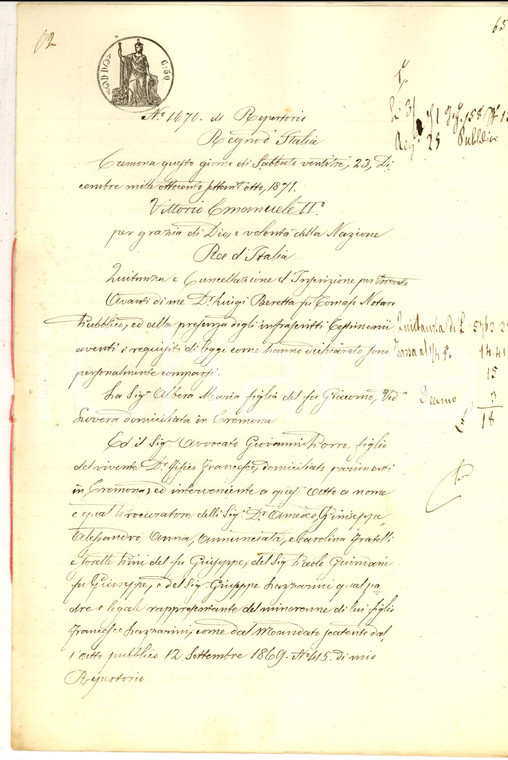 65
N.º 1671. di Repertorio
Regno d'Italia
Cremona questo giorno di Sabbato ventitre, 23, Di
cembre mille ottocento settant'otto, 1871.
Vittorio Emanuele IIº
per grazia di Dio, e volontà della Nazione
Re d'Italia
Quitanza e Cancellazione d'Inscrizione per
Avanti di me Dr. Luigi Beretta fu Tomaso Notaro
Pubblico, ed alla presenza degli infrascritti Testimonii
aventi i requisiti di legge come hanno dichiarato sono
personalmente comparsi
La Sigra Albera Maria figlia del fu Giacomo, Vedª
domiciliata in Cremona
Ed il Sigr Avvocato Giovanni figlio
del vivente Dr. Francesco, domiciliato parimenti
in Cremona, ed interveniente a quest'atto a nome
e qual Procuratore delli Sigi Dr. Amadio, Giuseppe,
Alessandro, Anna, Annunciata, e Carolina fratelli
e sorelle del fu Giuseppe, del Sigr Paolo
fu Giuseppe, e del Sigr Giuseppe Lazzarini qual pa
dre e legale rappresentante del minorenne di lui figlio
Francesco Lazzarini, come dal Mandato portato dal
l'atto pubblico 12 Settembre 1869. Nº 615. di mio
Repertorio
Quitanza di L
Tassa al
14.41
15
Decimo 3
18